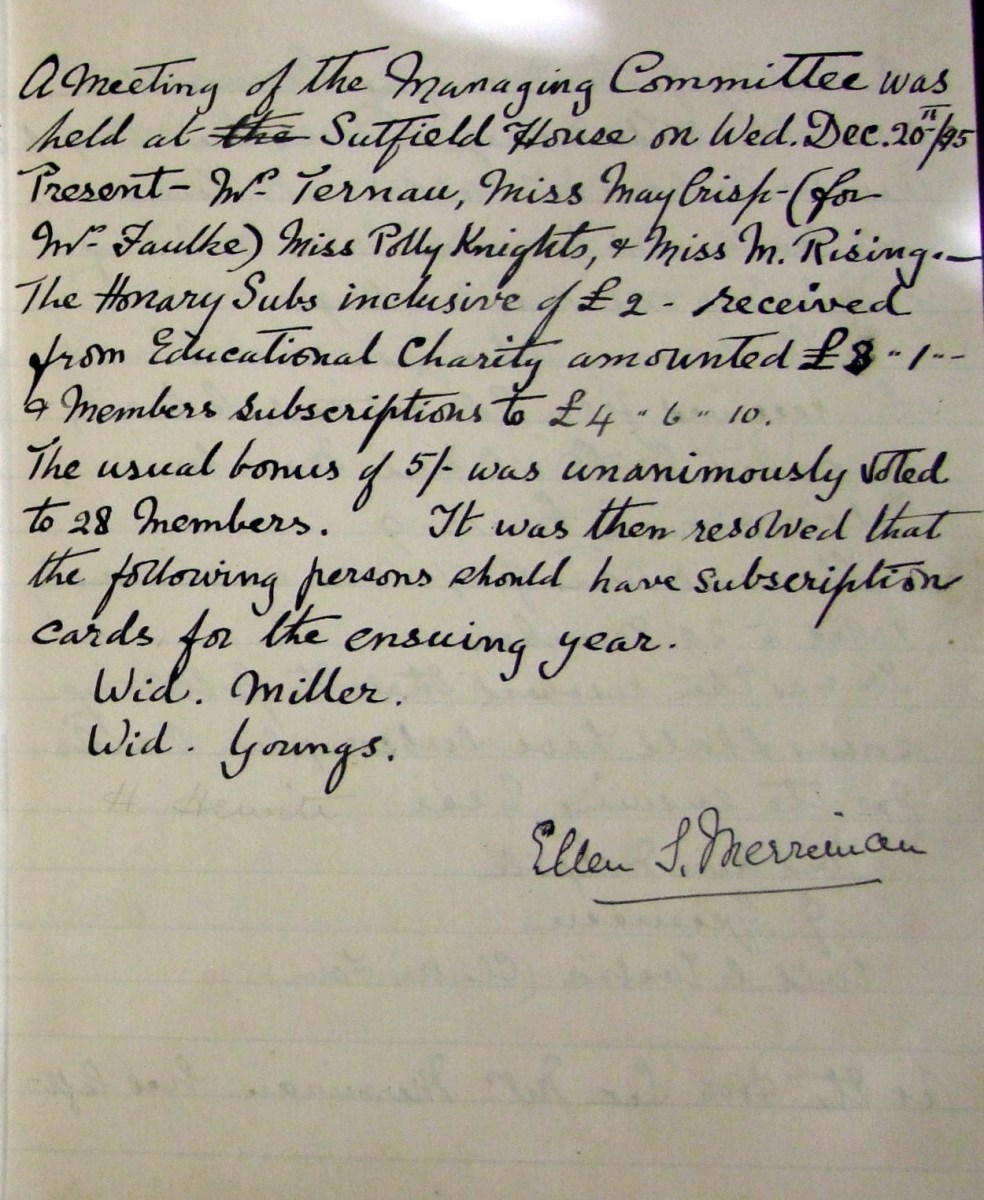 A Meeting of the Managing Committee was
held at the Sutfield House on Wed. Dec. 20th/95
Present - Mrs Ternau, Miss May Crisp - (for
Mrs Faulke) Miss Polly Knights, & Miss M. Rising. -
The Honary Subs inclusive of £2 - received
from Educational Charity amounted £8 " 1 " -
& Members subscriptions to £4 " 6 " 10.
The usual bonus of 5/- was unanimously voted
to 28 Members. It was then resolved that
the following persons should have subscription
cards for the ensuing year.
Wid. Miller.
Wid. Youngs.
Ellen S. Merriman